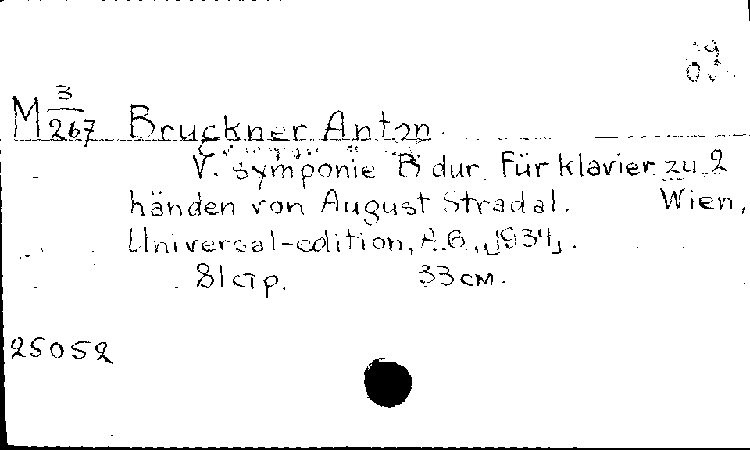 M 3/267 Bruckner Anton.
V. symponie B dur. Für klavier zu 2
händen von August Stradal. Wien,
Universal-edition, A.G.
81 стр. 33 см.
25052